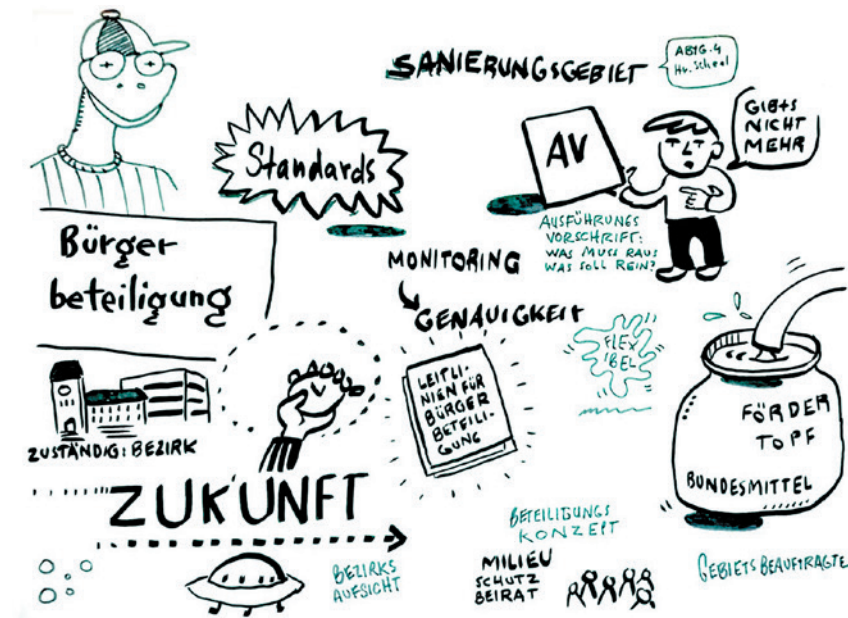 SANIERUNGSGEBIET
ABTG. 4
Hr. Scheel
Standards
AV
GIBTS
NICHT
MEHR
AUSFÜHRUNGS
VORSCHRIFT:
WAS MUSS RAUS
WAS SOLL REIN?
Bürger
beteiligung
MONITORING
GENAUIGKEIT
FLEX
IBEL
LEITLI-
NIEN FÜR
BÜRGER
BETEILI-
GUNG
FÖRDER
TOPF
BUNDESMITTEL
ZUSTÄNDIG: BEZIRK
ZUKUNFT
BEZIRKS
AUFSICHT
BETEILIGUNGS
KONZEPT
MILIEU
SCHUTZ
BEIRAT
GEBIETSBEAUFTRAGTE